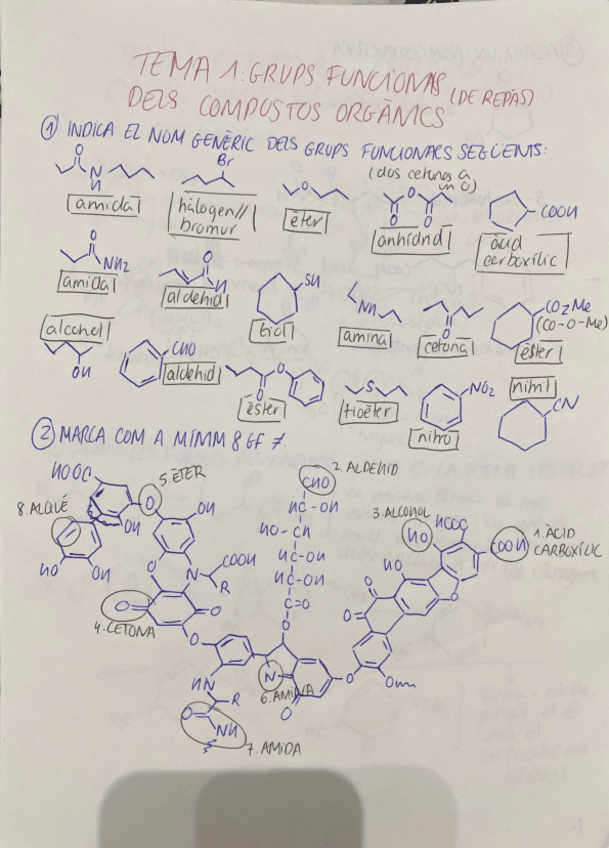 TEMA 1: GRUPS FUNCIONAS (DE REPÀS)
DELS COMPOSTOS ORGÀNICS
① INDICA EL NOM GENÈRIC DELS GRUPS FUNCIONALS SEGÜENTS:
(dos cetones a un O)
O N H
Br
O
O O O
COOH
amida
hàlogen//
bromur
èter
anhídrid
àcid
carboxílic
O NH2
O H
SH
NH
O
CO2Me
(CO-O-Me)
amida
aldehid
tiol
amina
cetona
èster
alcohol
OH
CHO
aldehid
O O
èster
S
tioèter
NO2
nitro
nitril
CN
② MARCA COM A MÍNIM 8 GF ≠
HOOC
5. ÈTER
2. ALDEHID
CHO
8. ALQUÉ
O
OH
HC-OH
3. ALCOHOL
HOOC
1. ÀCID
CARBOXÍLIC
OH
HO-CH
HO
COOH
HO
OH
O
COOH
HC-OH
HO
N
R
HC-OH
O
O
O
C=O
O
O
4. CETONA
O
O
HN
R
N
6. AMINA
O
O
O
NH
7. AMIDA